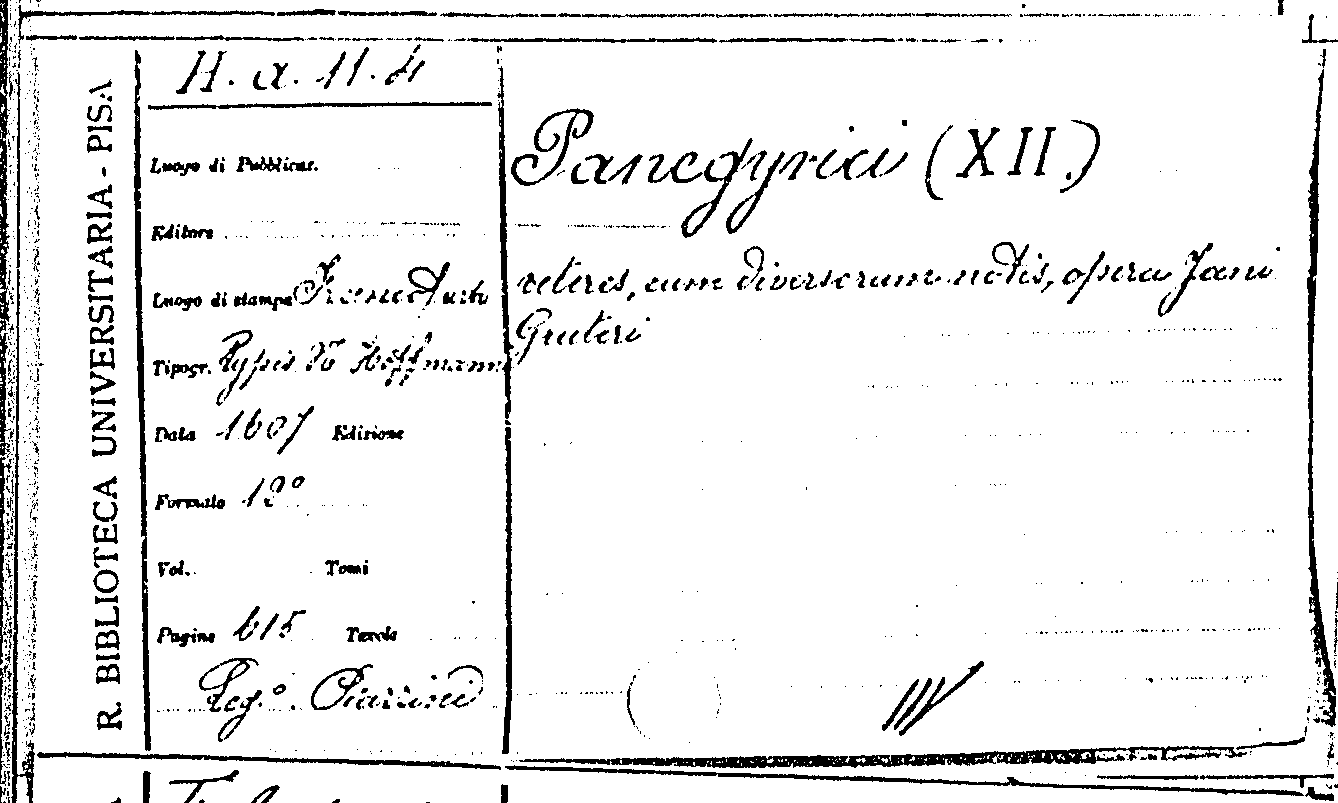 R. BIBLIOTECA UNIVERSITARIA - PISA
H. a. 11. 4
Luogo di Pubblicaz.
Editore
Luogo di stampa Francofurti
Tipogr. Typis Hoffmanni
Data 1607 Edizione
Formato 12°
Vol. Tomi
Pagine 615 Tavole
Leg.° Piazzini
Panegyrici (XII.)
veteres, cum diversorum notis, opera Jani
Gruteri